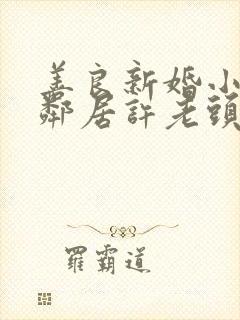 美良新婚小
鄰居許老頭
羅霸道